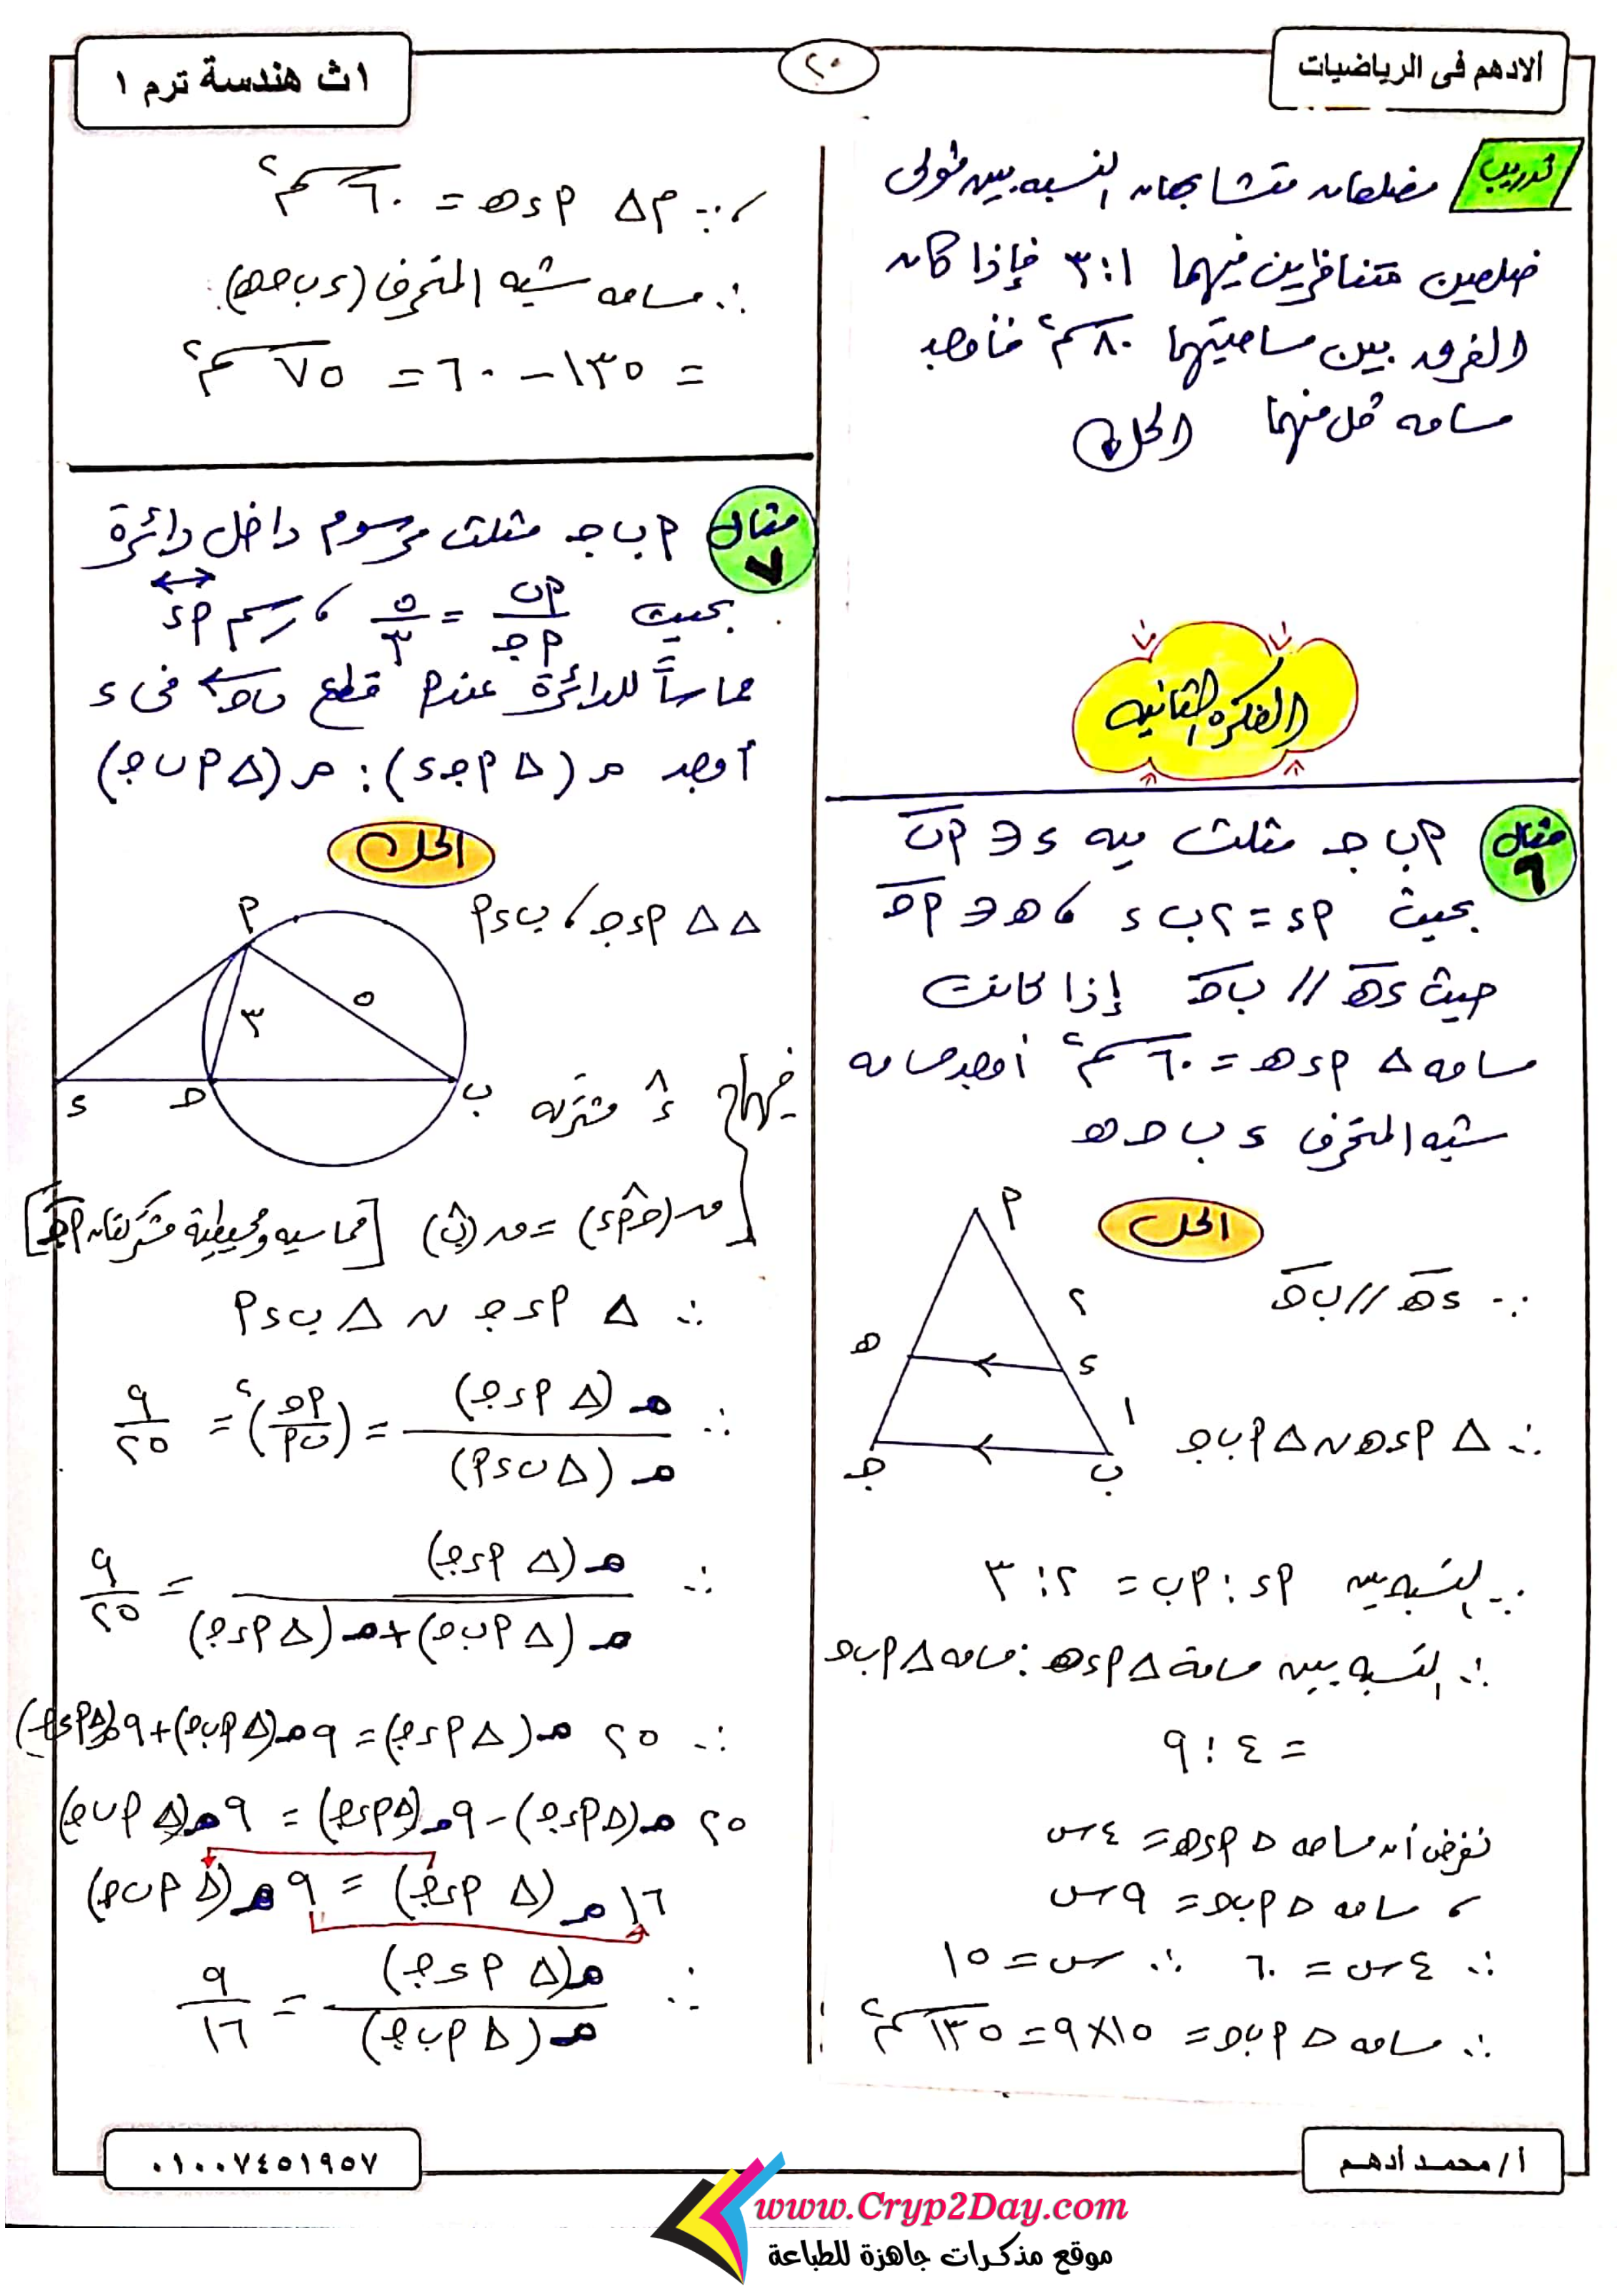 ألادهم فى الرياضيات
٢٠
١ث هندسة ترم ١
تدريب
مضلعان متشابهان النسبه بين طولى
ضلعين متناظرين فيهما ١ : ٣ فإذا كان
الفرق بين مساحتيهما ٨٠ سم٢ فأوجد
مساحه كل منهما
الحل
الفكرة الثانيه
مثال ٦
أ ب جـ مثلث فيه د ∈ أب
بحيث أد = ٢ ب د ، هـ ∈ أجـ
حيث دهـ // بجـ إذا كانت
مساحه Δ أدهـ = ٦٠ سم٢ أوجد مساحه
شبه المنحرف د ب جـ هـ
الحل
أ
٢
هـ
د
١
جـ
ب
∵ دهـ // بجـ
∴ Δ أدهـ ~ Δ أبجـ
∵ النسبه بين أد : أب = ٢ : ٣
∴ النسبه بين مساحة Δ أدهـ : مساحه Δ أبجـ
= ٤ : ٩
نفرض أن مساحه Δ أدهـ = ٤س
، مساحه Δ أبجـ = ٩س
∴ ٤س = ٦٠ ∴ س = ١٥
∴ مساحه Δ أبجـ = ١٥ × ٩ = ١٣٥ سم٢
، ∵ م Δ أدهـ = ٦٠ سم٢
∴ مساحه شبه المنحرف (د ب جـ هـ)
= ١٣٥ − ٦٠ = ٧٥ سم٢
مثال ٧
أ ب جـ مثلث مرسوم داخل دائرة
بحيث أب/أجـ = ٥/٣ ، رسم أد
مماساً للدائرة عند أ قطع بجـ فى د
أوجد م (Δ أجـد) : م (Δ أبجـ)
الحل
Δ Δ أدجـ ، ب د أ
أ
٥
٣
د
جـ
ب
فيهما
د مشتركه
ق(جـأد) = ق(ب) [مماسيه ومحيطية مشتركتان أجـ]
∴ Δ أدجـ ~ Δ ب د أ
∴ م (Δ أدجـ) / م (Δ ب د أ) = (أجـ/أب)٢ = ٩/٢٥
∴ م (Δ أدجـ) / م (Δ أبجـ) + م (Δ أدجـ) = ٩/٢٥
∴ ٢٥ م (Δ أدجـ) = ٩ م (Δ أبجـ) + ٩ م (Δ أدجـ)
٢٥ م (Δ أدجـ) − ٩ م (Δ أدجـ) = ٩ م (Δ أبجـ)
١٦ م (Δ أدجـ) = ٩ م (Δ أبجـ)
∴ م (Δ أدجـ) / م (Δ أبجـ) = ٩/١٦
أ / محمد أدهم
٠١٠٠٧٤٥١٩٥٧
www.Cryp2Day.com
موقع مذكرات جاهزة للطباعة